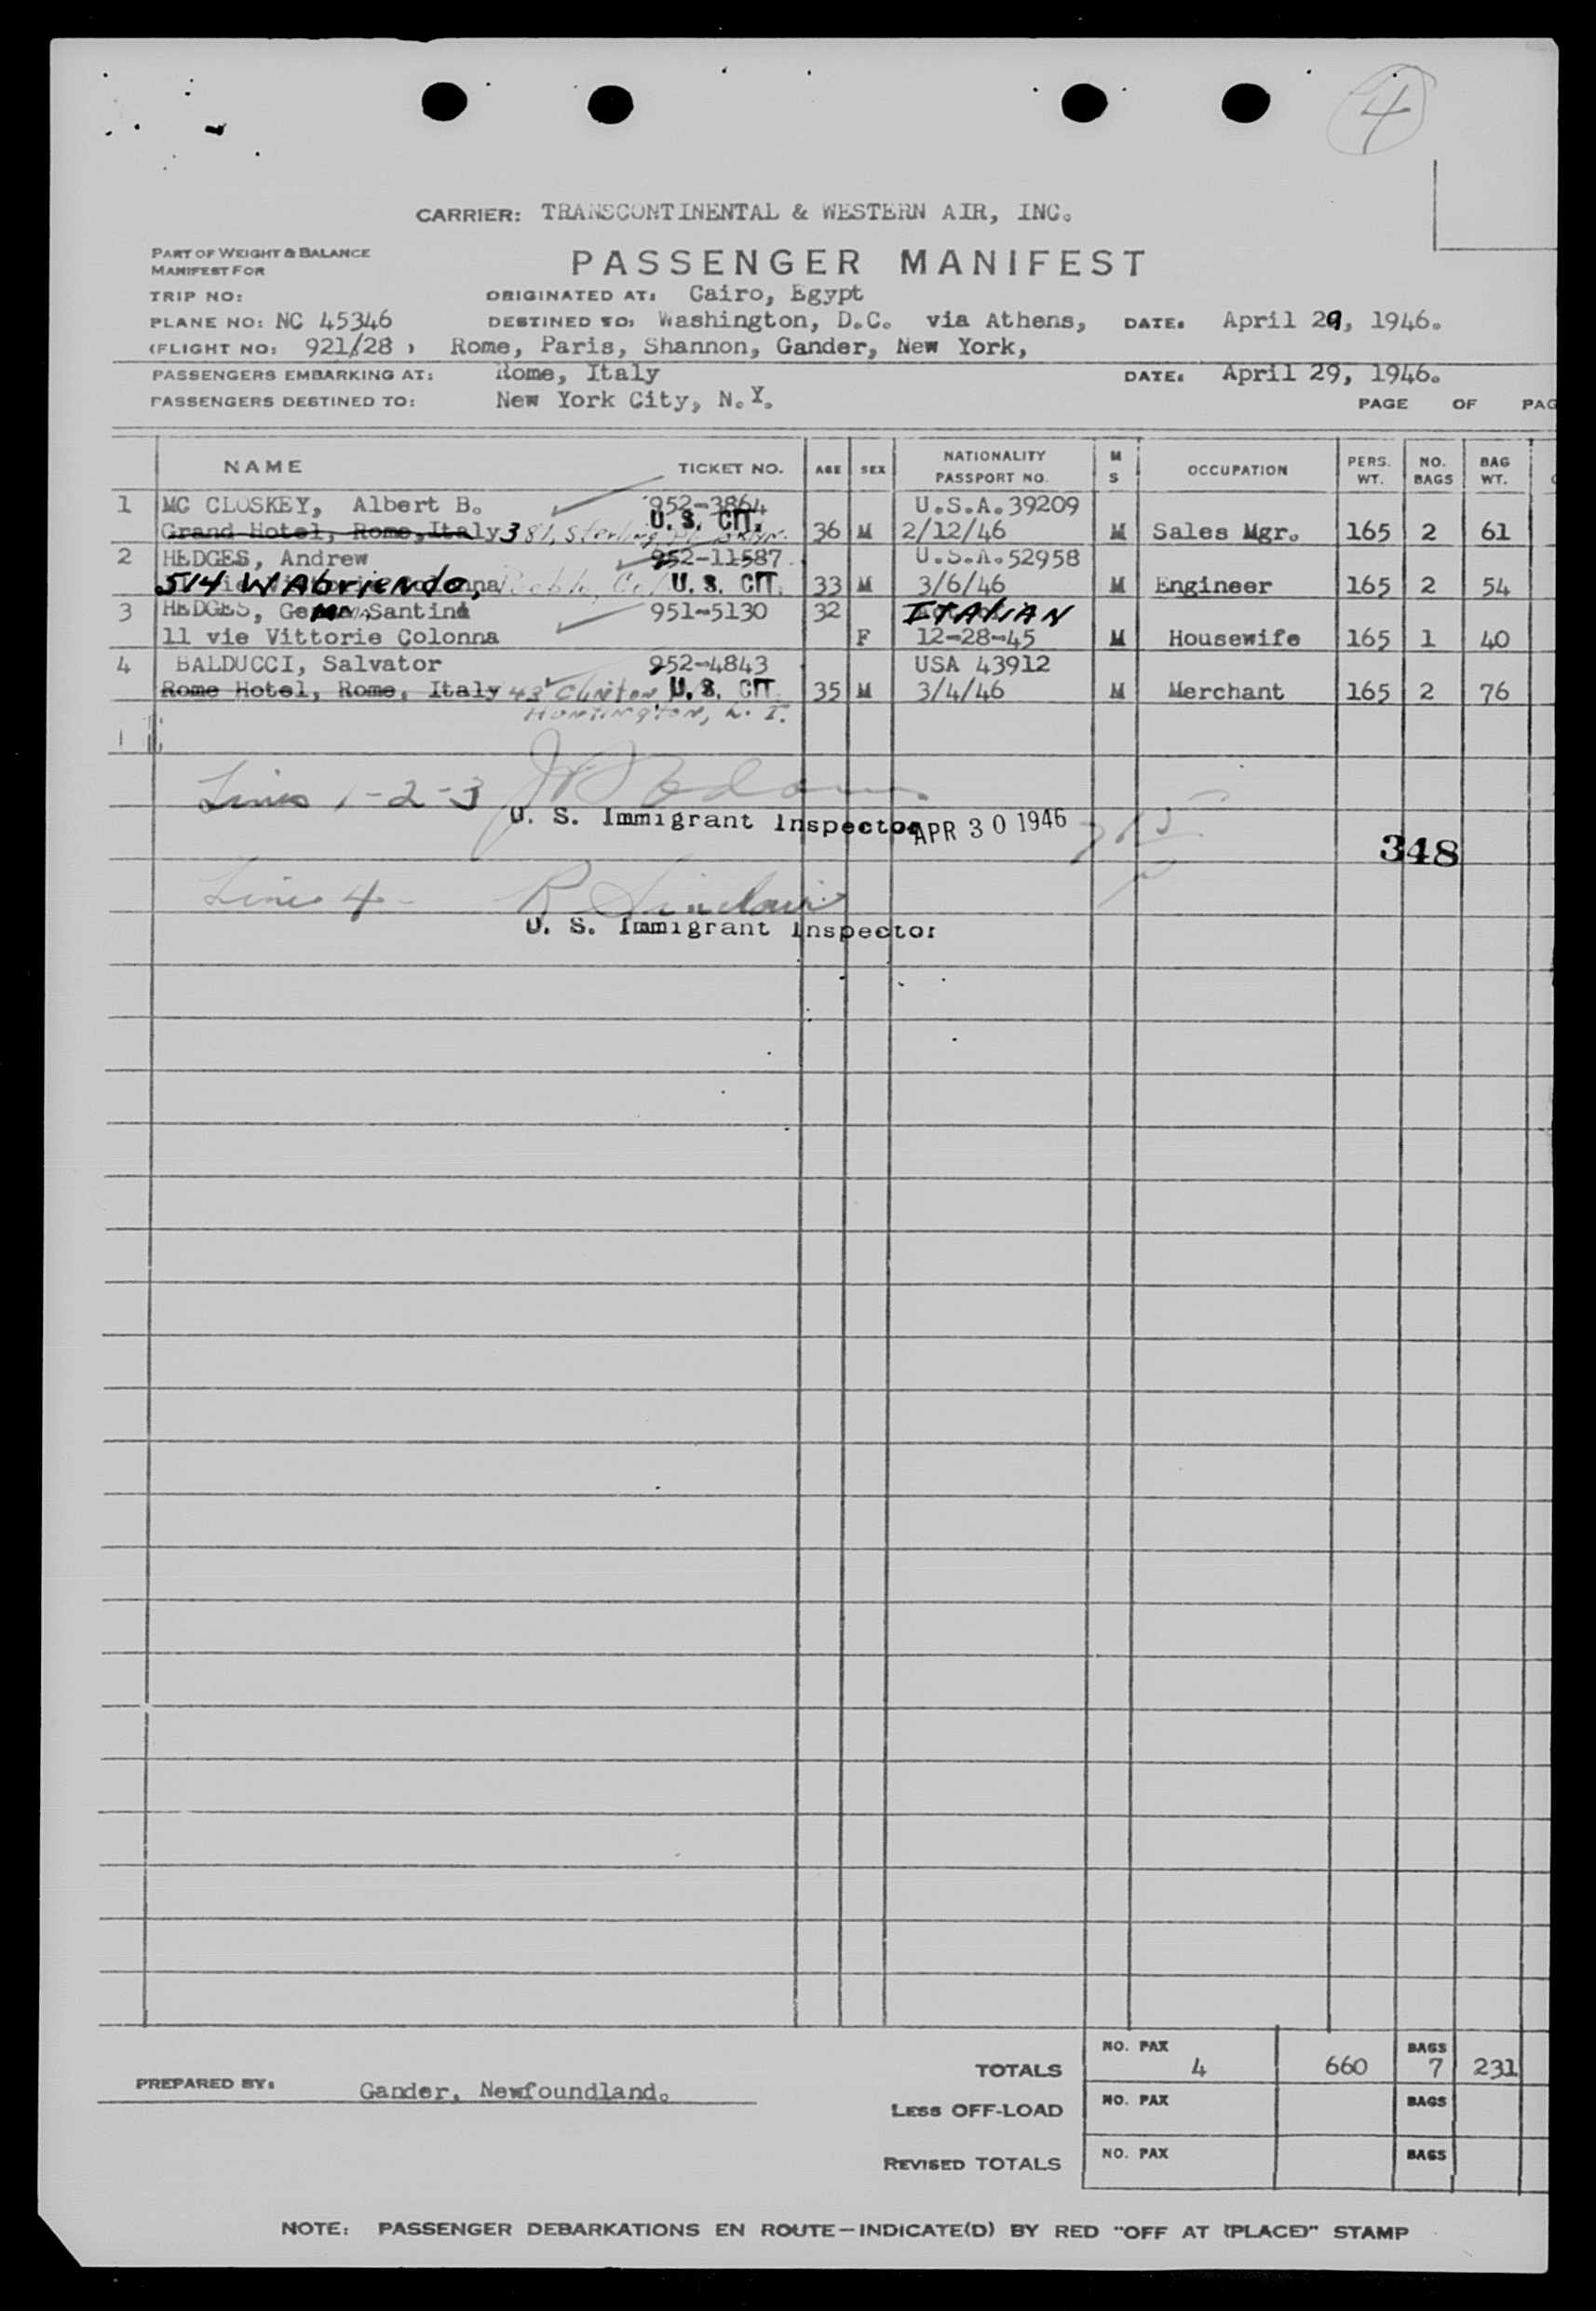 4
CARRIER: TRANSCONTINENTAL & WESTERN AIR, INC.
PART OF WEIGHT & BALANCE
MANIFEST FOR
PASSENGER MANIFEST
TRIP NO:
ORIGINATED AT: Cairo, Egypt
PLANE NO: NC 45346 DESTINED TO: Washington, D.C. via Athens, DATE: April 29, 1946.
(FLIGHT NO: 921/28 ) Rome, Paris, Shannon, Gander, New York,
PASSENGERS EMBARKING AT: Rome, Italy DATE: April 29, 1946.
PASSENGERS DESTINED TO: New York City, N.Y.
PAGE OF PAG
NAME TICKET NO. AGE SEX NATIONALITY PASSPORT NO. M S OCCUPATION PERS. WT. NO. BAGS BAG WT.
1 MC CLOSKEY, Albert B. 952-3864 U.S.A. 39209
Grand Hotel, Rome, Italy 381, Sterling Pl. Bklyn. U. S. CIT. 36 M 2/12/46 M Sales Mgr. 165 2 61
2 HEDGES, Andrew 952-11587 U.S.A. 52958
514 W Abriendo, U. S. CIT. 33 M 3/6/46 M Engineer 165 2 54
3 HEDGES, Gemma, Santina 951-5130 32 ITALIAN
11 vie Vittorie Colonna F 12-28-45 M Housewife 165 1 40
4 BALDUCCI, Salvator 952-4843 USA 43912
Rome Hotel, Rome, Italy 43 Clinton U. S. CIT. 35 M 3/4/46 M Merchant 165 2 76
Huntington, L. I.
Lines 1-2-3
U. S. Immigrant Inspector APR 30 1946
348
Line 4 - R Sinclair
U. S. Immigrant Inspector
PREPARED BY: Gander, Newfoundland.
TOTALS NO. PAX 4 660 BAGS 7 231
LESS OFF-LOAD NO. PAX BAGS
REVISED TOTALS NO. PAX BAGS
NOTE: PASSENGER DEBARKATIONS EN ROUTE—INDICATE(D) BY RED "OFF AT (PLACE)" STAMP